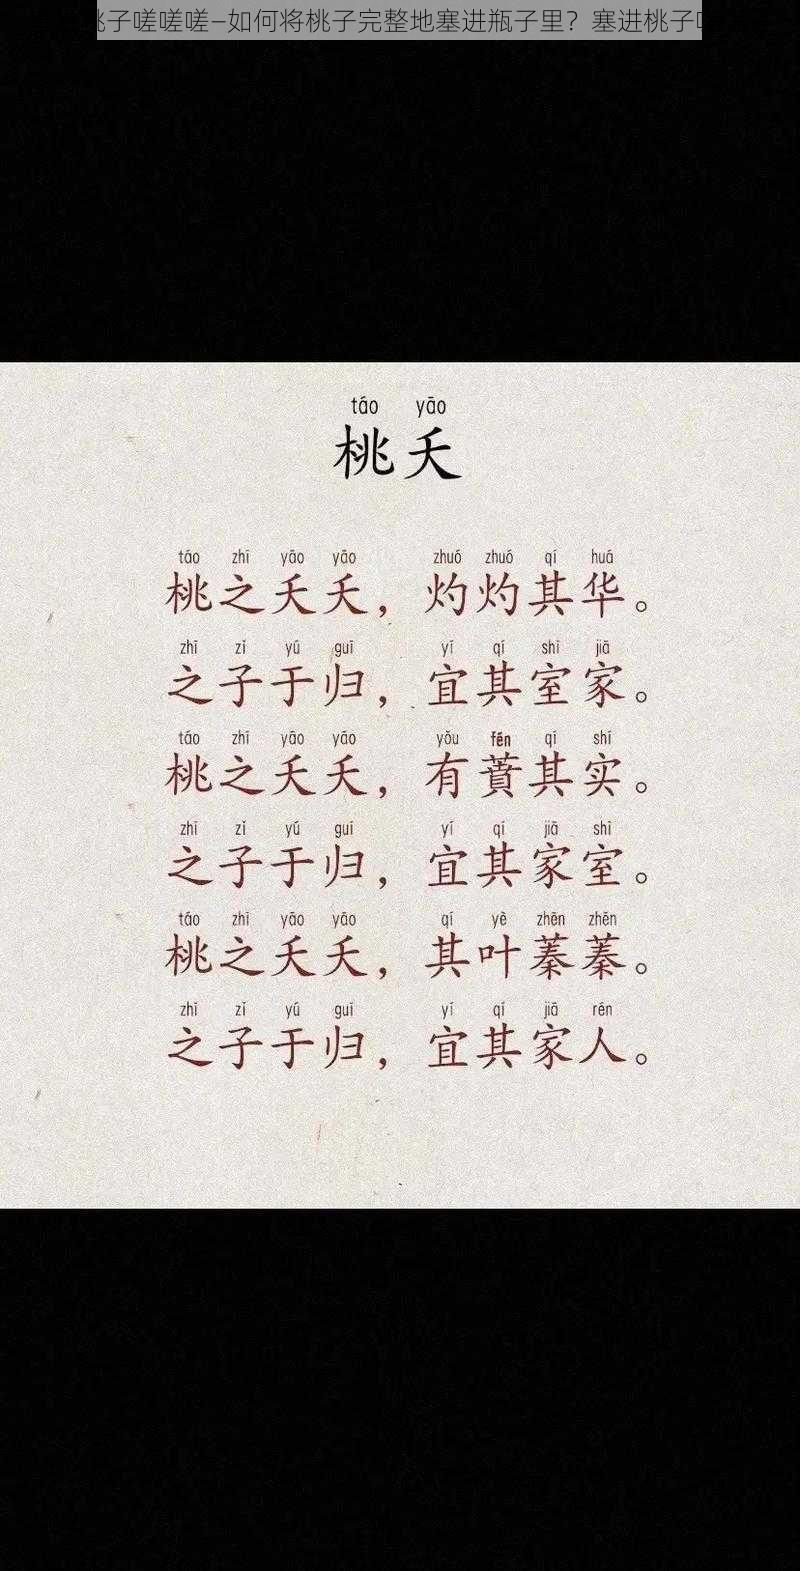 桃子嗟嗟嗟—如何将桃子完整地塞进瓶子里？塞进桃子
táo yāo
桃夭
táo zhī yāo yāo zhuó zhuó qí huá
桃之夭夭，灼灼其华。
zhī zǐ yú guī yí qí shì jiā
之子于归，宜其室家。
táo zhī yāo yāo yǒu fén qí shí
桃之夭夭，有蕡其实。
zhī zǐ yú guī yí qí jiā shì
之子于归，宜其家室。
táo zhī yāo yāo qí yè zhēn zhēn
桃之夭夭，其叶蓁蓁。
zhī zǐ yú guī yí qí jiā rén
之子于归，宜其家人。